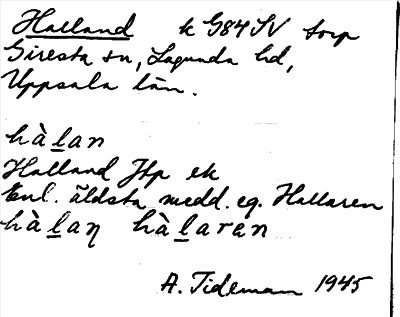 Halland k G84SV torp
Giresta sn, Lagunda hd,
Uppsala län.
hàlan
Halland Jfp ek
Enl. äldsta medd. eg. Hallaren
hàlaη hàlaren
A. Tideman 1945